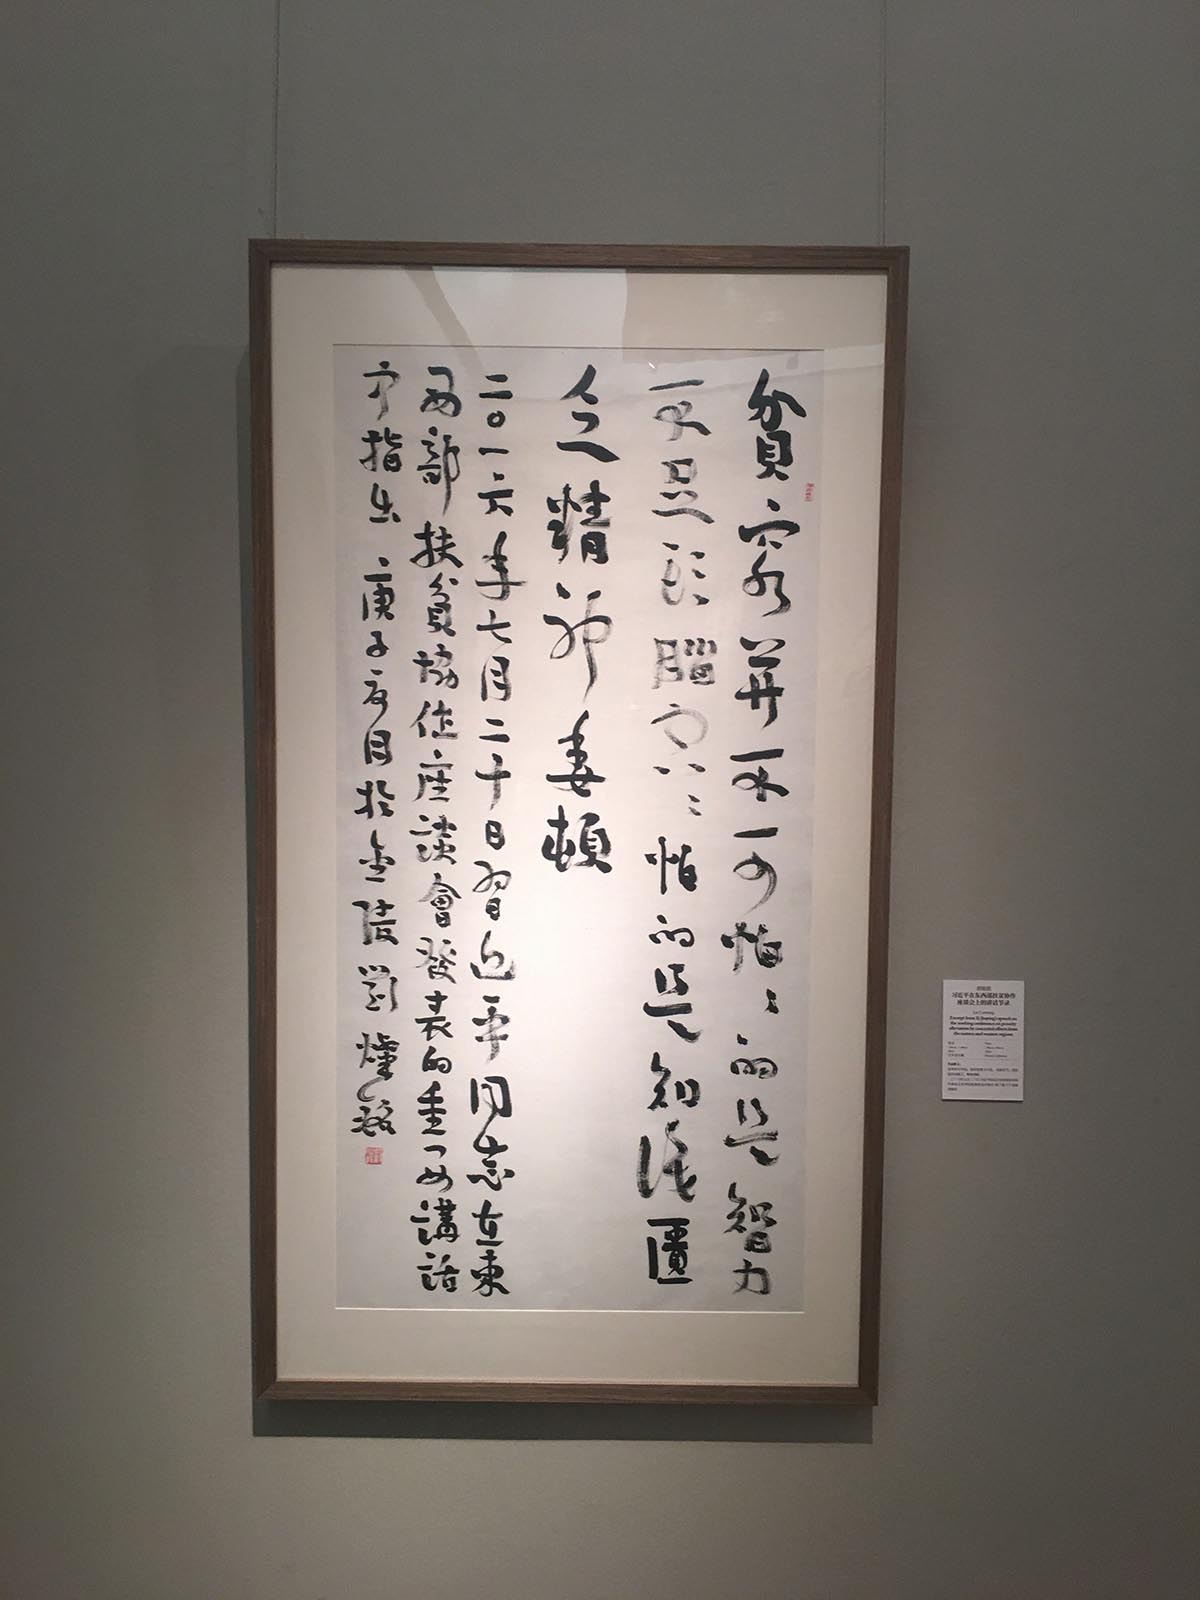 貧窮并不可怕〻的是智力
不足頭腦空〻怕的是知識匱
乏精神委頓
二〇一六年七月二十日習近平同志在東
西部扶貧協作座談會發表的重要講話
中指出 庚子夏月於金陵劉燦銘
刘灿铭
习近平在东西部扶贫协作
座谈会上的讲话节录
Liu Canming
Excerpt from Xi Jinping's speech on
the working conference on poverty
alleviation by concerted efforts from
the eastern and western regions